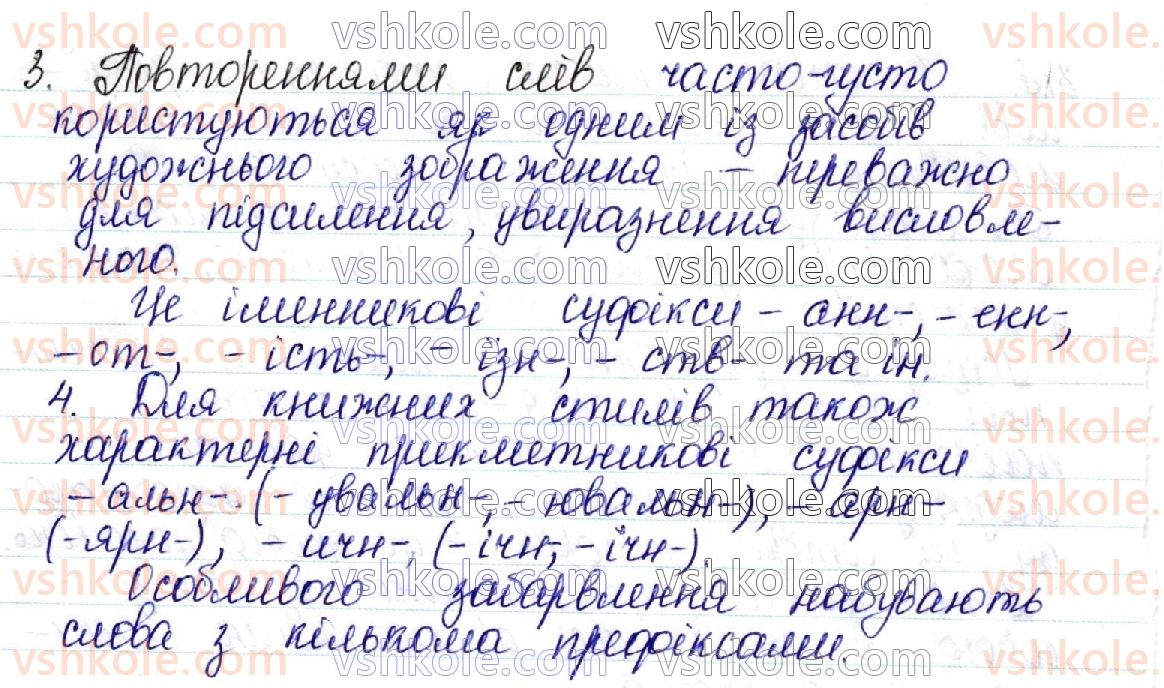 3. Повтореннями слів часто-густо
користуються як одним із засобів
художнього зображення – переважно
для підсилення, увиразнення висловле-
ного.
Це іменникові суфікси – анн-, - енн-,
- от-, - ість-, - ізн-, - ств- та ін.
4. Для книжних стилів також
характерні прикметникові суфікси
- альн- (- увальн-, - ювальн-), - арн-
(-ярн-), - ичн-, (- ічн-, - їчн-).
Особливого забарвлення набувають
слова з кількома префіксами.